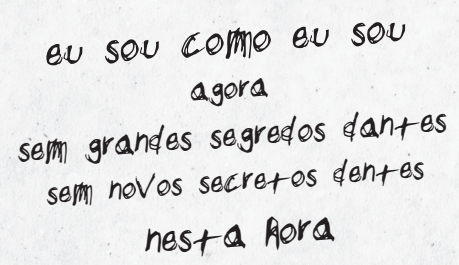 eu sou como eu sou
agora
sem grandes segredos dantes
sem novos secretos dentes
nesta hora